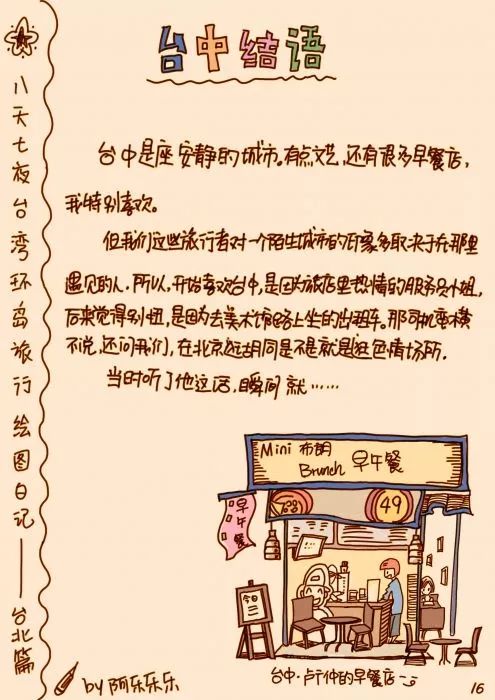 台中结语
八天七夜台湾环岛旅行绘图日记——台北篇
台中是座安静的城市。有点文艺,还有很多早餐店,
我特别喜欢。
但我们这些旅行者对一个陌生城市的印象多取决于在那里
遇见的人。所以,开始喜欢台中,是因为旅店里热情的服务员小姐,
后来觉得别扭,是因为去美术馆路上坐的出租车。那司机蛮横
不说,还问我们,在北京逛胡同是不是就是逛色情场所.
当时听了他这话,瞬间就……
Mini 布朗
Brunch 早午餐
49
早午餐
今日
台中·卢广仲的早餐店
by 阿乐乐乐
16